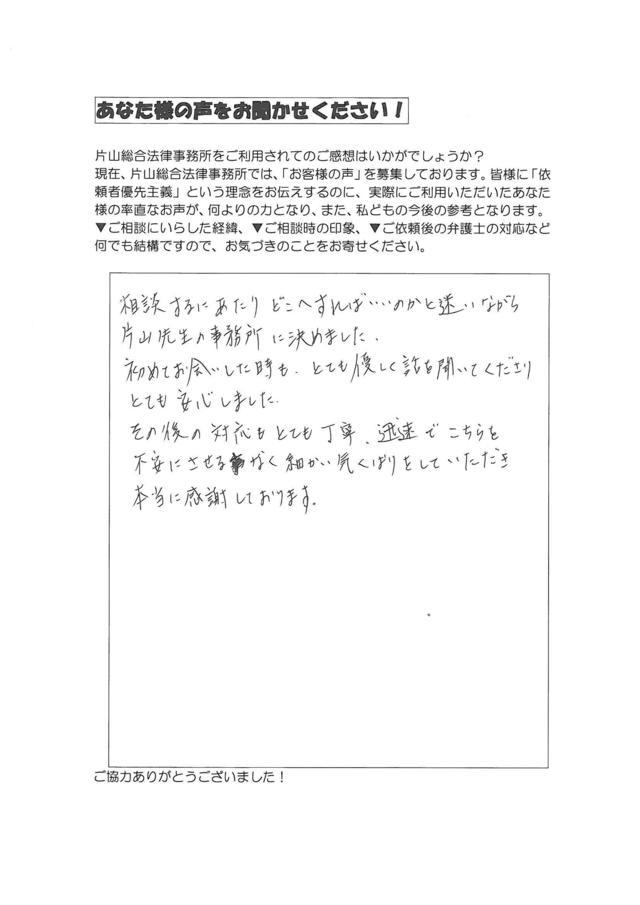 あなた様の声をお聞かせください！
片山総合法律事務所をご利用されてのご感想はいかがでしょうか？
現在、片山総合法律事務所では、「お客様の声」を募集しております。皆様に「依
頼者優先主義」という理念をお伝えするのに、実際にご利用いただいたあなた
様の率直なお声が、何よりの力となり、また、私どもの今後の参考となります。
▼ご相談にいらした経緯、▼ご相談時の印象、▼ご依頼後の弁護士の対応など
何でも結構ですので、お気づきのことをお寄せください。
相談するにあたり どこへすればいいのかと迷いながら
片山先生の事務所に決めました。
初めてお会いした時も、とても優しく話を聞いてくださり
とても安心しました。
その後の対応もとても丁寧、迅速でこちらを
不安にさせる事なく細かい気くばりをしていただき
本当に感謝しております。
ご協力ありがとうございました！